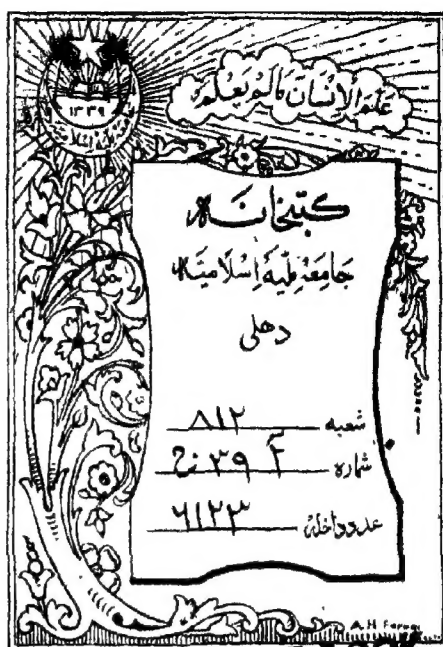 عَلَّمَ الْاِنْسَانَ مَا لَمْ يَعْلَمْ
۱۳۳۹
کتبخانہ
جامعہ ملیہ اسلامیہ
دهلی
شعبہ ۸۱۲
شمارہ
عدد داخلہ ۶۱۲۳